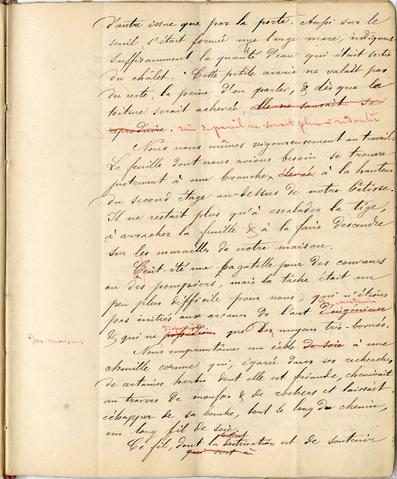 d'autre issue que par la porte. Aussi sur le
seuil s'était formée une large mare, indiquant
suffisamment la quantité d'eau qui était sortie
du châlet. Cette petite avarie ne valait pas
du reste, la peine d'en parler, & dès que la
toiture serait achevée, elle ne saurait se
reproduire. rien de pareil ne serait plus à redouter
Nous nous mîmes vigoureusement au travail.
La feuille dont nous avions besoin se trouva
justement à une branche, élevée à la hauteur
du second étage au-dessus de notre bâtisse.
Il ne restait plus qu'à escalader la tige,
à arracher la feuille & à la faire descendre
sur les murailles de notre maison.
C'eut été une bagatelle pour des couvreurs
ou des pompiers, mais la tâche était un
peu plus difficile pour nous, qui n'étions
pas initiés aux arcanes de l'art d'ingénieur
& qui ne disposions que de moyens très-bornés.
des moyens
Nous empruntâmes un câble de soie à une
chenille cornue qui, égarée dans ses recherches
de certaines herbes dont elle est friande, cheminait
au travers de mousses & de rochers et laissait
échapper de sa bouche, tout le long du chemin,
un long fil de soie.
Ce fil, dont la destination est de soutenir
qui sert à